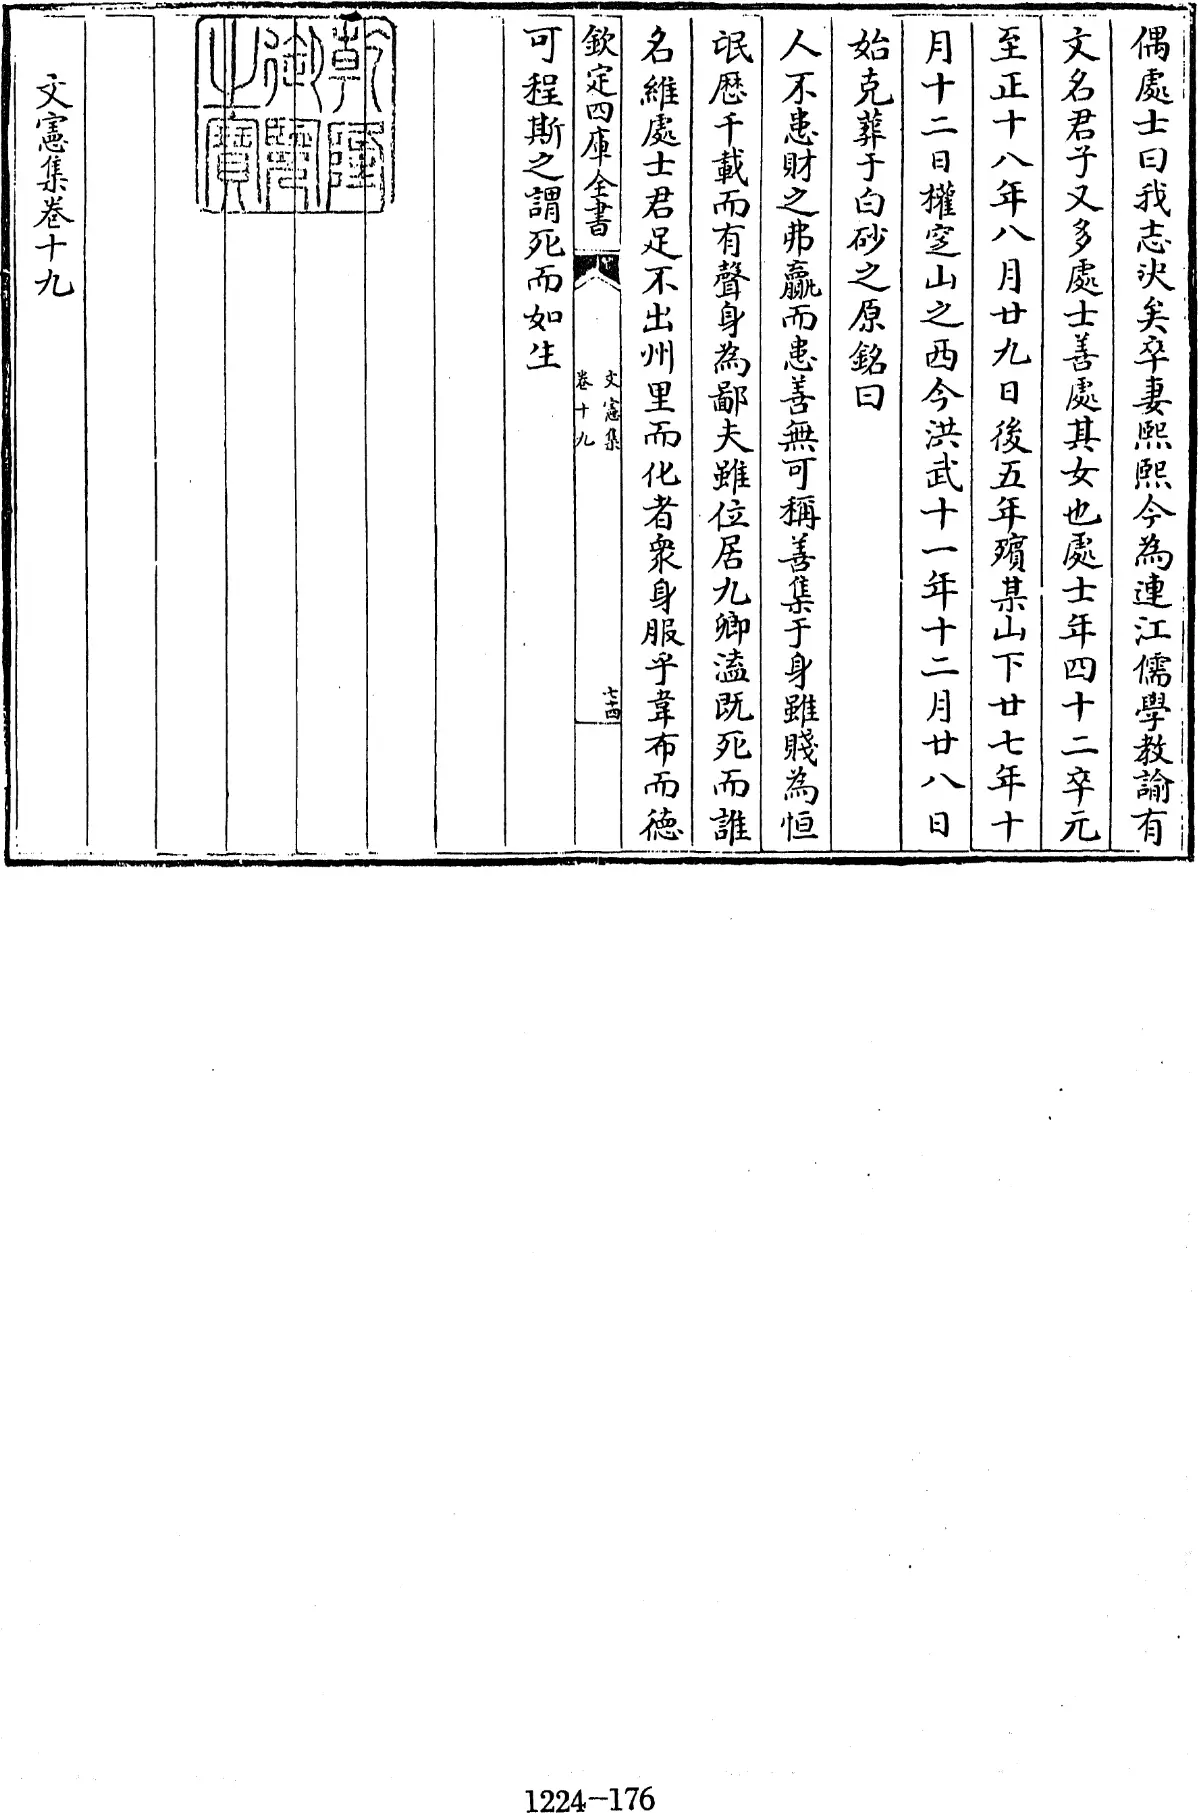 偶處士曰我志決矣卒妻熙熙今為連江儒學教諭有
文名君子又多處士善處其女也處士年四十二卒元
至正十八年八月廿九日後五年殯某山下廿七年十
月十二日權窆山之西今洪武十一年十二月廿八日
始克葬于白砂之原銘曰
人不患財之弗贏而患善無可稱善集于身雖賤為恒
氓歴千載而有聲身為鄙夫雖位居九卿溘既死而誰
名維處士君足不出州里而化者衆身服乎韋布而德
欽定四庫全書
文憲集
卷十九
七十四
可程斯之謂死而如生
乾隆御覽之寶
文憲集卷十九
1224-176